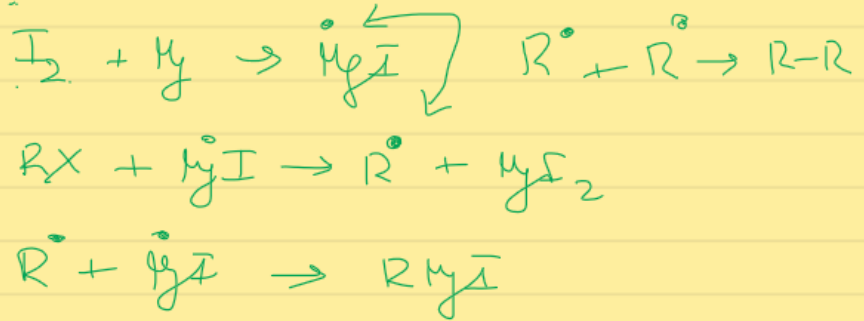 I₂ + Mg → ṀgI R• + R• → R-R
RX + ṀgI → R• + MgI₂
R• + ṀgI → RMgI